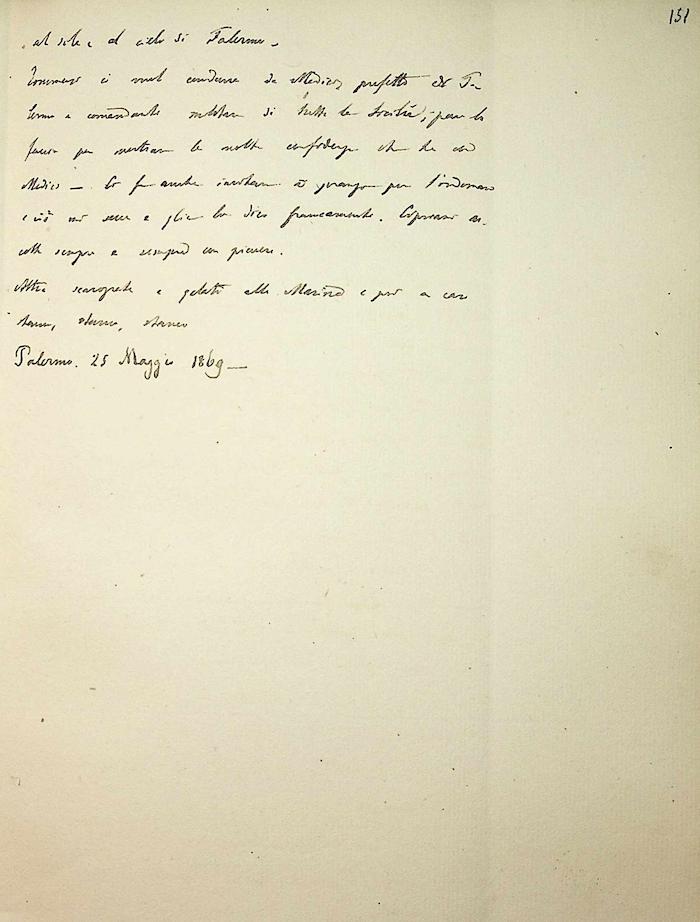 151
al sole e al cielo di Palermo.
Tommasi ci vuol condurre da Medici, prefetto di Pa-
lermo e comandante militare di tutta la Sicilia;
per mostrare la molta confidenza che ha con
Medici — invitare a pranzo per l'indomani
e ciò mi secca e glielo dico francamente.
sempre e sempre con piacere.
Altra scarrozzata e gelati alla Marina e poi a casa
stanco, stanco, stanco
Palermo. 25 Maggio 1869 —